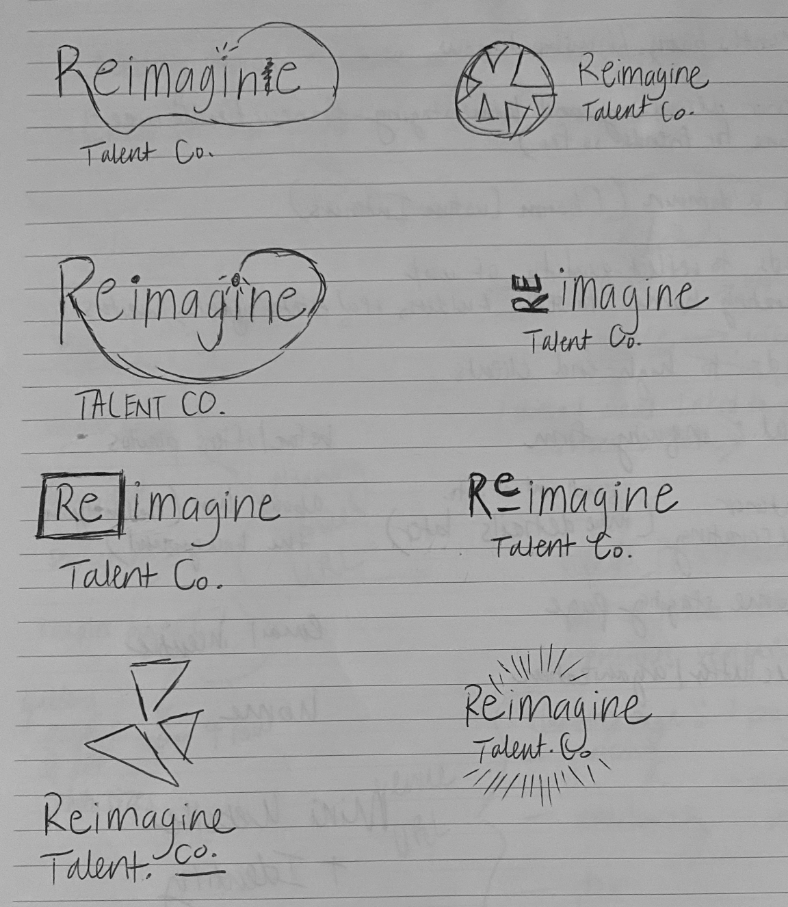 Reimagine
Talent Co.
Reimagine
Talent Co.
Reimagine
TALENT CO.
REimagine
Talent Co.
Reimagine
Talent Co.
Reimagine
Talent Co.
Reimagine
Talent. Co.
Reimagine
Talent. Co